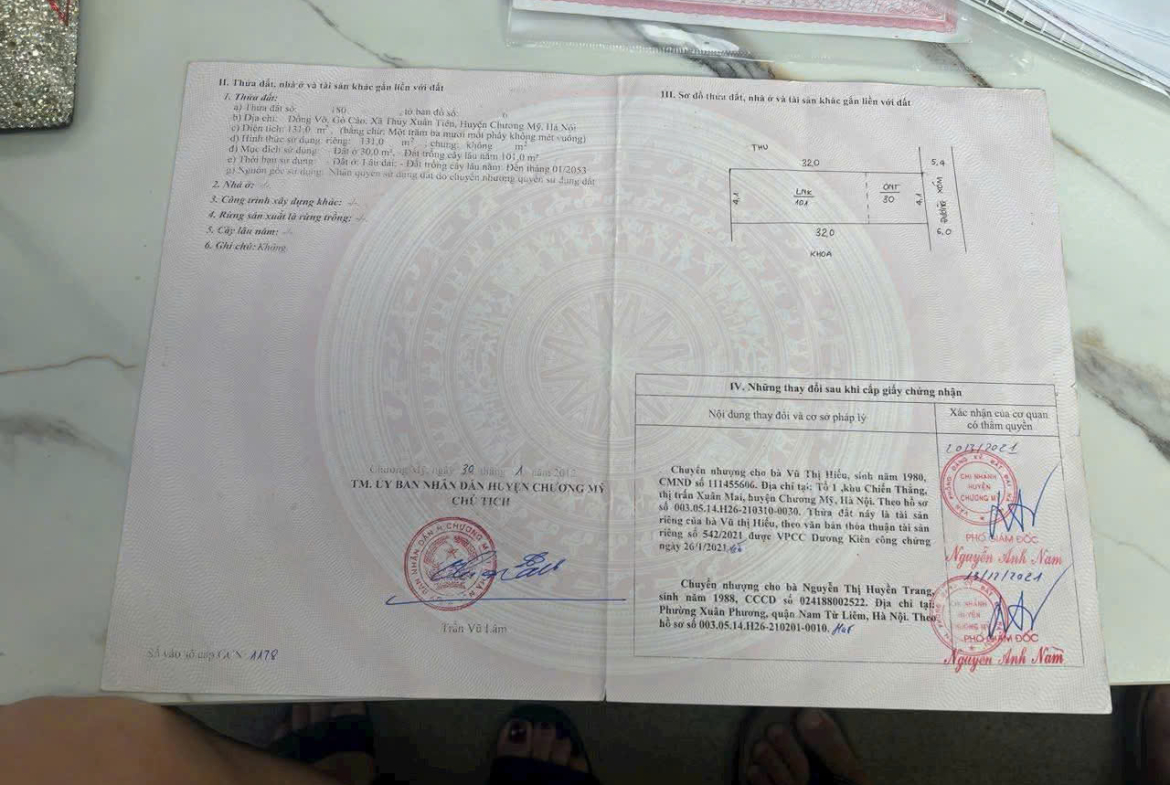 II. Thửa đất, nhà ở và tài sản khác gắn liền với đất
1. Thửa đất:
a) Thửa đất số: 180 , tờ bản đồ số: 6
b) Địa chỉ: Đồng Vỡ, Gò Cáo, Xã Thủy Xuân Tiên, Huyện Chương Mỹ, Hà Nội
c) Diện tích: 131,0 m², (bằng chữ: Một trăm ba mươi mốt phẩy không mét vuông)
d) Hình thức sử dụng riêng: 131,0 m², chung: không m²
đ) Mục đích sử dụng: - Đất ở 30,0 m², - Đất trồng cây lâu năm 101,0 m²
e) Thời hạn sử dụng: - Đất ở: Lâu dài; - Đất trồng cây lâu năm: Đến tháng 01/2053
g) Nguồn gốc sử dụng: Nhận quyền sử dụng đất do chuyển nhượng quyền sử dụng đất
2. Nhà ở: -/-
3. Công trình xây dựng khác: -/-
4. Rừng sản xuất là rừng trồng: -/-
5. Cây lâu năm: -/-
6. Ghi chú: Không
Chương Mỹ, ngày 30 tháng 1 năm
TM. ỦY BAN NHÂN DÂN HUYỆN CHƯƠNG MỸ
CHỦ TỊCH
Trần Vũ Lâm
Số vào sổ cấp GCN: 1178
III. Sơ đồ thửa đất, nhà ở và tài sản khác gắn liền với đất
THU
32,0
5,4
4,1
LNK
101
ONT
30
4,1
ĐƯỜNG XÓM
32,0
6,0
KHOA
IV. Những thay đổi sau khi cấp giấy chứng nhận
Nội dung thay đổi và cơ sở pháp lý
Xác nhận của cơ quan
có thẩm quyền
Chuyển nhượng cho bà Vũ Thị Hiếu, sinh năm 1980,
CMND số 111455606. Địa chỉ tại: Tổ 1 ,khu Chiến Thắng,
thị trấn Xuân Mai, huyện Chương Mỹ, Hà Nội. Theo hồ sơ
số 003.05.14.H26-210310-0030. Thửa đất này là tài sản
riêng của bà Vũ thị Hiếu, theo văn bản thỏa thuận tài sản
riêng số 542/2021 được VPCC Dương Kiên công chứng
ngày 26/1/2021
CHI NHÁNH
HUYỆN
CHƯƠNG MỸ
PHÓ GIÁM ĐỐC
Nguyễn Anh Nam
Chuyển nhượng cho bà Nguyễn Thị Huyền Trang,
sinh năm 1988, CCCD số 024188002522. Địa chỉ tại:
Phường Xuân Phương, quận Nam Từ Liêm, Hà Nội. Theo
hồ sơ số 003.05.14.H26-210201-0010.
CHI NHÁNH
HUYỆN
CHƯƠNG MỸ
PHÓ GIÁM ĐỐC
Nguyễn Anh Nam